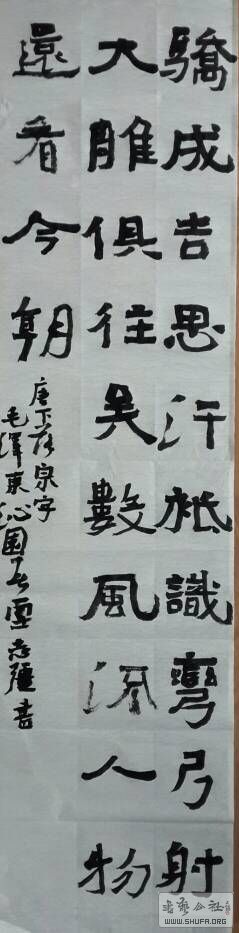 驕成吉思汗祇識彎弓射
大雕俱往矣數風流人物
還看今朝
唐下落宗字
毛澤東沁園春雪志疆書
书艺公社
WWW.SHUFA.ORG